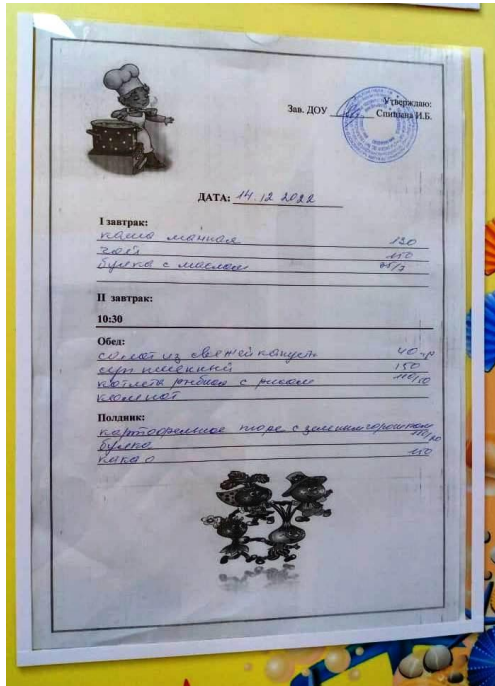 Утверждаю:
Зав. ДОУ Спицына И.Б.
ДАТА: 14.12 2022
I завтрак:
каша манная 120
чай 150
булка с маслом 25/7
II завтрак:
10:30
Обед:
салат из свежей капусты 40 гр
суп пшенный 150
котлета рыбная с рисом 110/50
компот
Полдник:
картофельное пюре с зеленым горошком 110/40
булка
какао 150